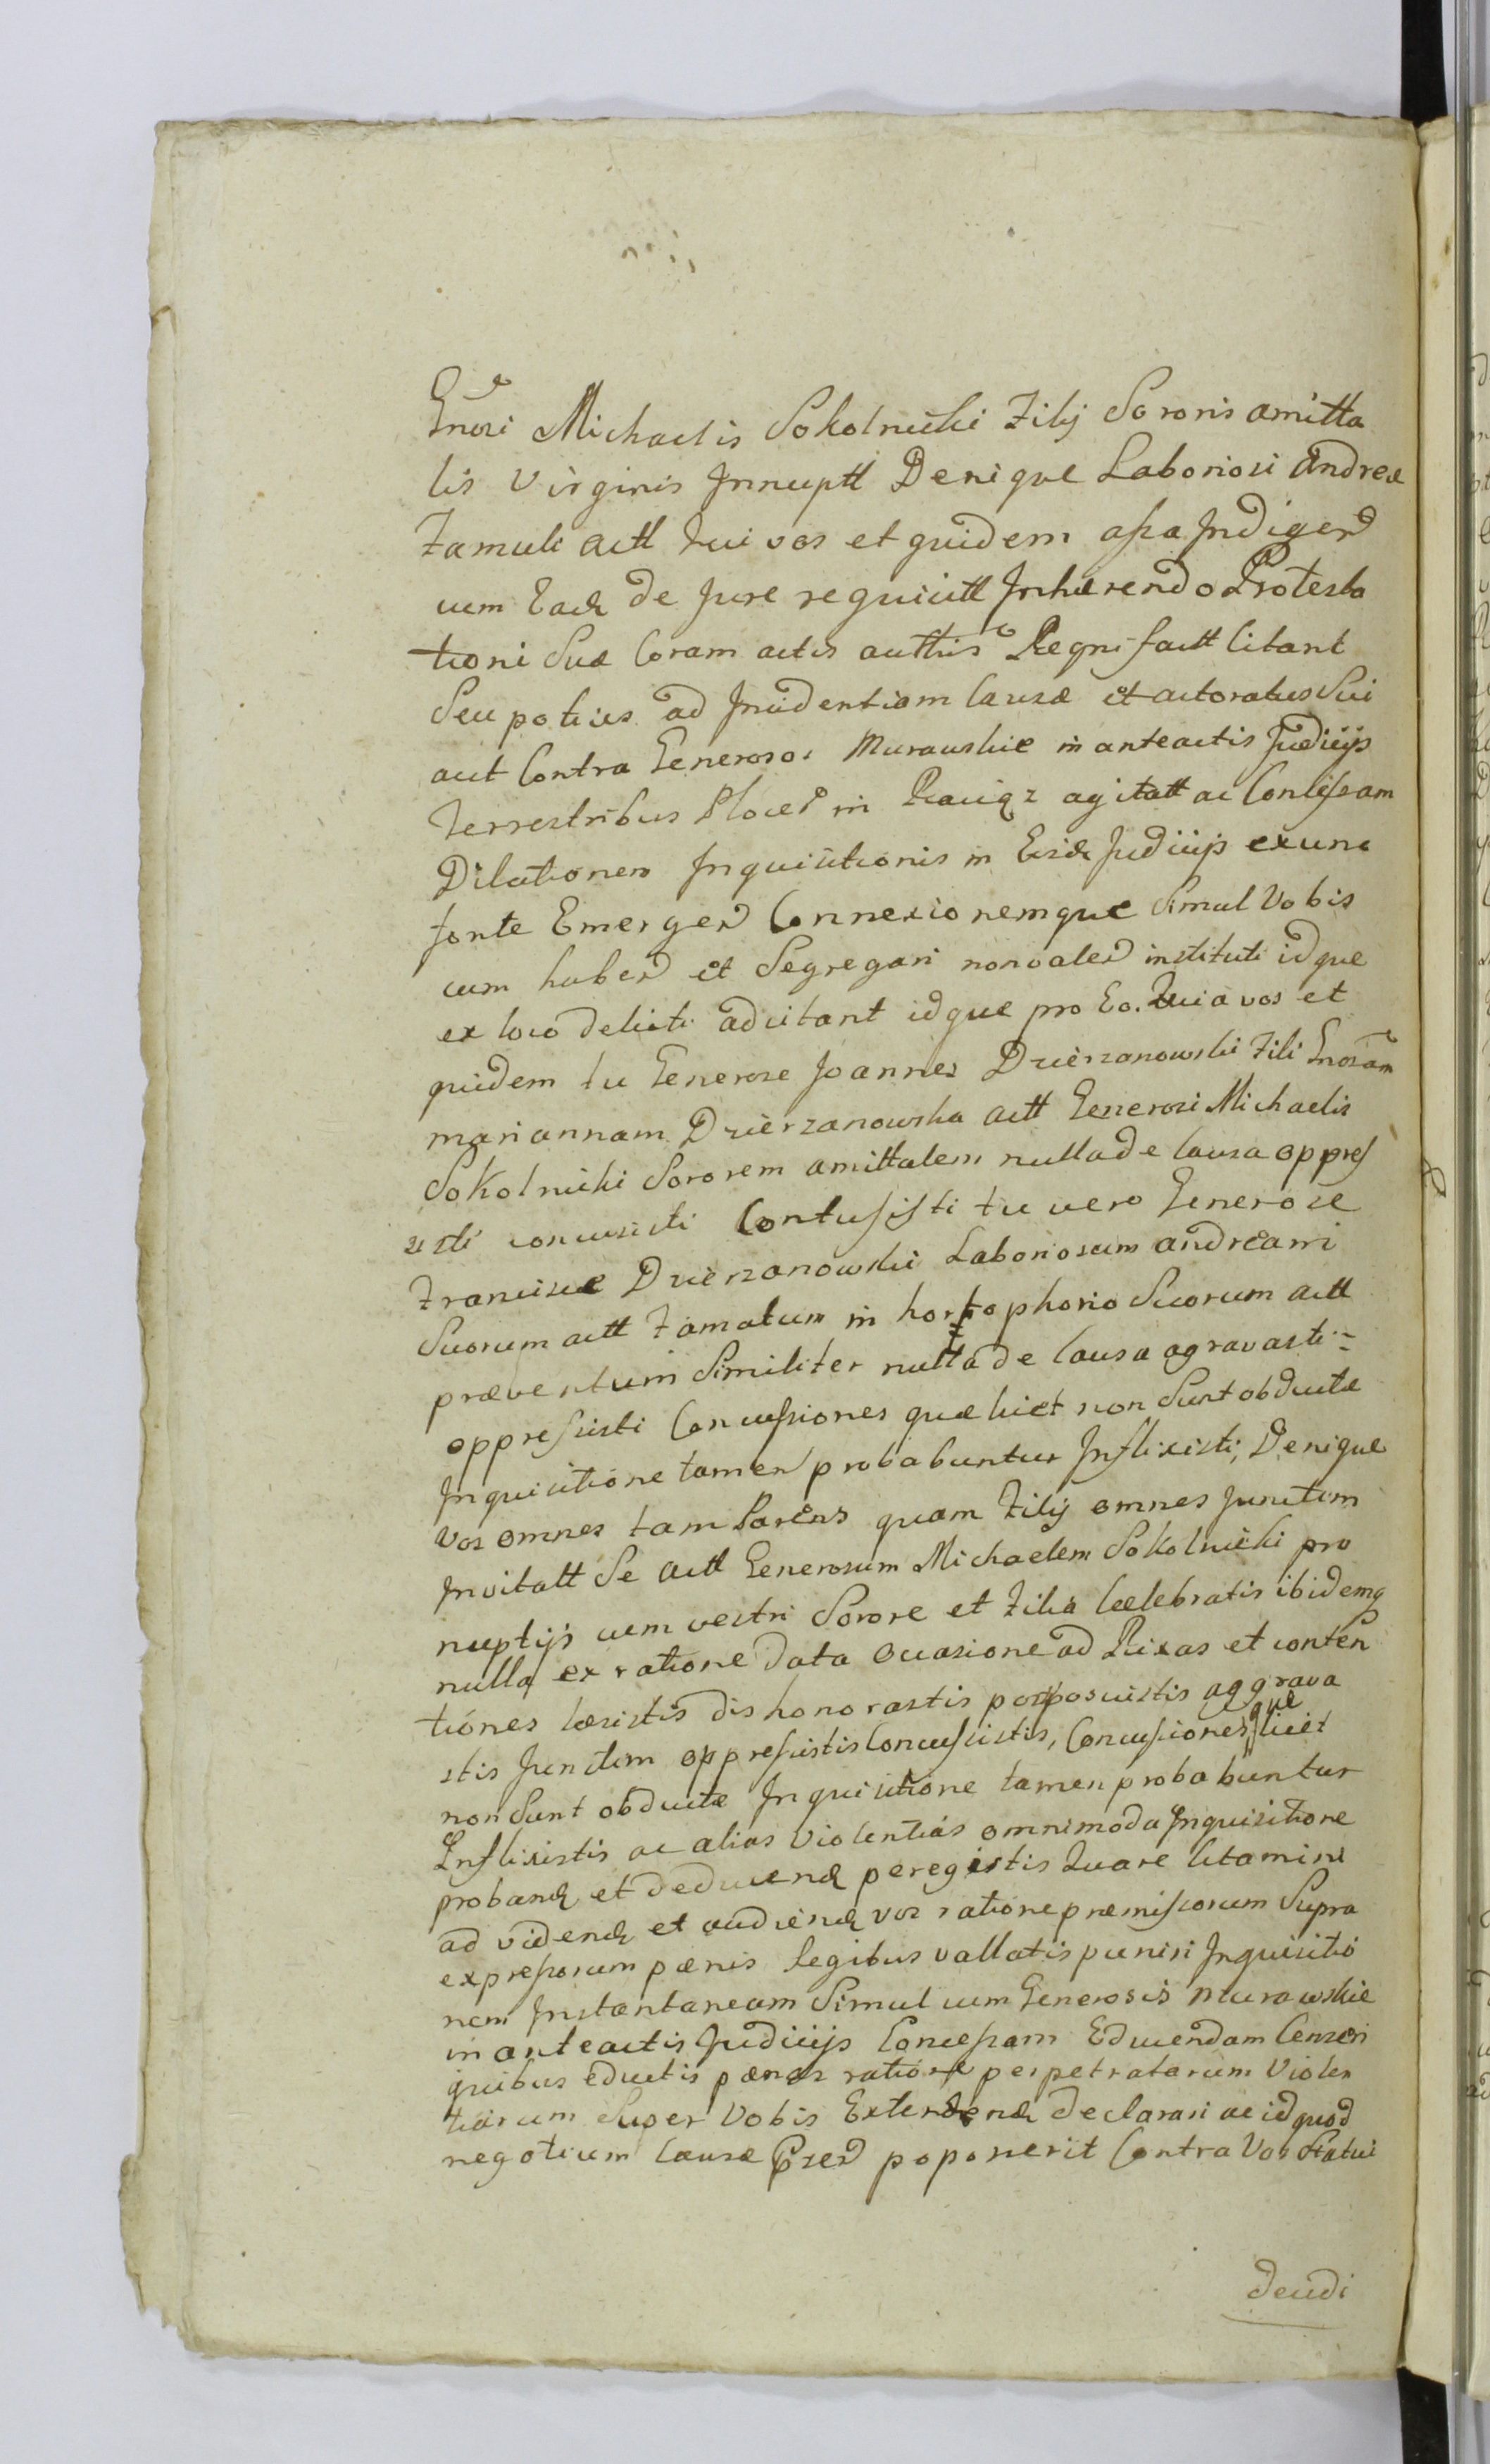 Gnosi Michaelis Sokolnicki Filij Sororis amitta
lis Virginis Innuptt Denique Laboriosi Andreæ
Famuli actt Qui vos et quidem assa Indigend
cum Ead de Jure requicitt Inhærendo Protesta
tioni Suæ Coram actis authis Regni factt Citant
Seu potius ad Incidentiam Causæ et actoratus Sui
aut Contra Generosos Murawskie in anteactis Judicijs
Terrestribus Plocen in Raciąz agitatt ac Concessam
Dilationem Inquisitionis in Eisd Judicijs ex uno
fonte Emergen Connexionemque Simul Vobis
cum haben et Segregari non valen instituti idque
ex loco delicti adcitant idque pro Eo. Quia vos et
quidem tu Generose Joannes Dzierzanowski Fili Gnosam
mariannam Dzierzanowska actt Generosi Michaelis
Sokolnicki Sororem amittalem nulla de Causa oppres
sisti concussisti Contusisti tu vero Generose
Francisce Dzierzanowski Laboriosum andream
Suorum actt Famulum in hortophorio Suorum actt
præventum Similiter nulla de Causa agravasti
oppressisti Concussiones quæ licet non Sunt obductæ
Inquisitione tamen probabuntur Inflixisti, Denique
Vos omnes tam Parens quam Filij omnes Junctim
Invitatt Se actt Generosum Michaelem Sokolnicki pro
nuptijs cum vestri Sorore et Filia Cælebratis ibidemq
nulla ex ratione data occasione ad Rixas et conten
tiones læsistis dishonorastis postposuistis aggrava
stis Junctim oppressistis Concussistis, Concussiones que licet
non Sunt obductæ Inquisitione tamen probabuntur
Inflixistis ac alias Violentias omnimoda Inquisitione
proband et deducend peregistis Quare Citamini
ad vidend et audiend vos ratione præmissorum Supra
expressorum pænis legibus vallatis puniri Inquisitio
nem Instantaneam Simul cum Generosis Murawskie
in anteactis Judicijs Concessam Educendam Censeri
quibus eductis pænas ratione perpetratarum Violen
tiarum Super Vobis Extendend declarari ac id quod
negotium Causæ poponerit Contra Vos Statui
decidi